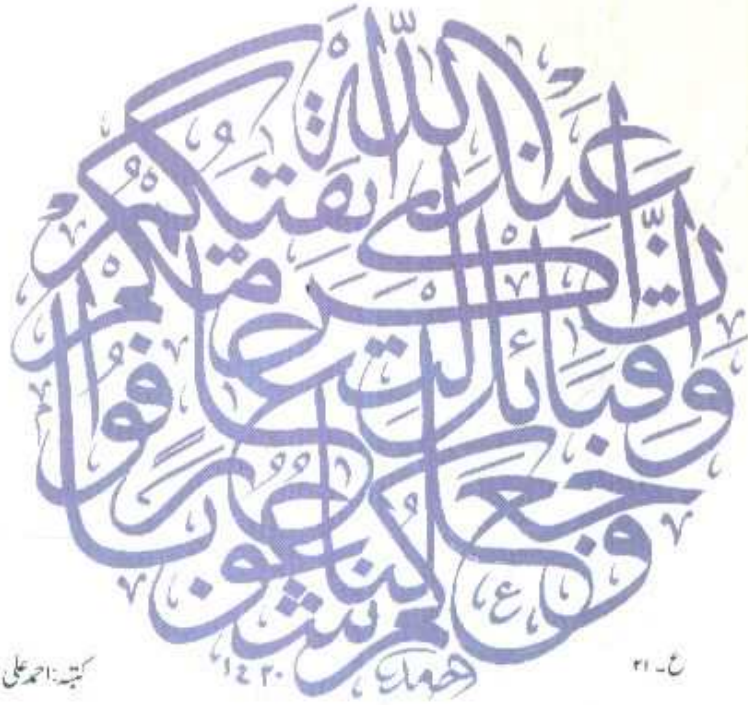 وَجَعَلْنٰكُمْ شُعُوْبًا وَّقَبَآئِلَ لِتَعَارَفُوْا اِنَّ اَكْرَمَكُمْ عِنْدَ اللّٰهِ اَتْقٰكُمْ
احمد ١٤٢٠
ع۔ ۲۱
کتبہ: احمد علی